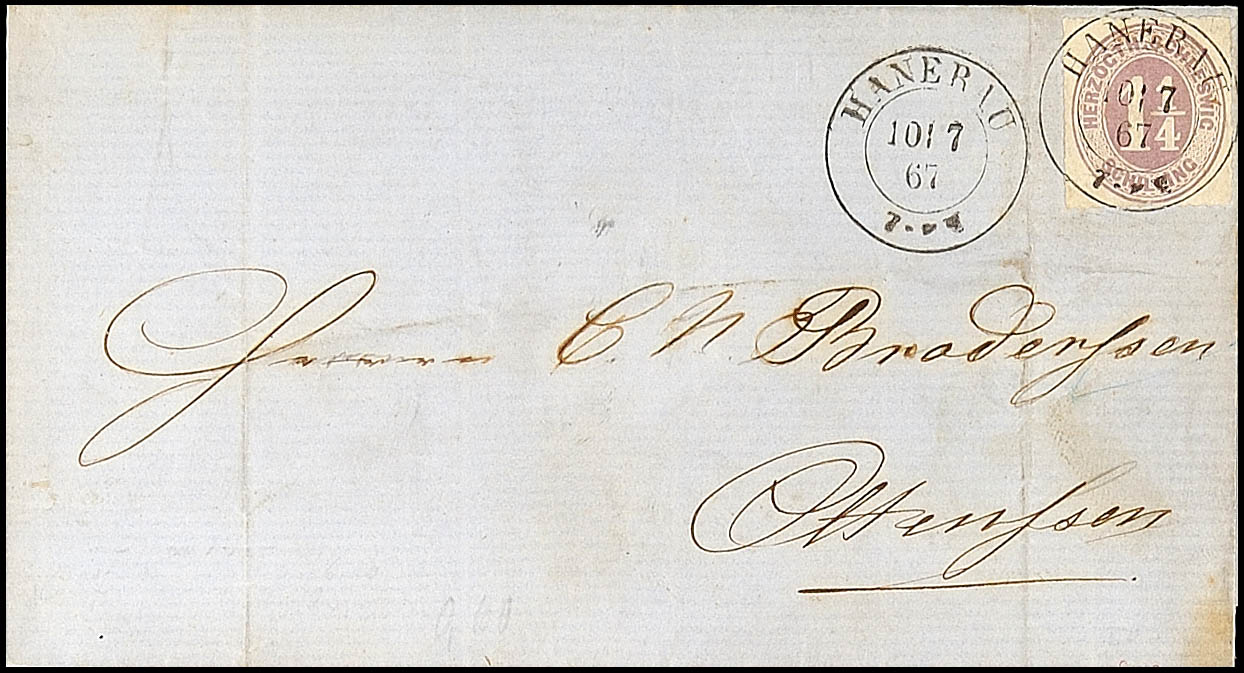 HANERAU
10 7
67
HANERAU
10 7
67
HERZOGTH. SCHLESWIG
1 1/4
SCHILLING
Herrn C. N Brodersen
Ottensen